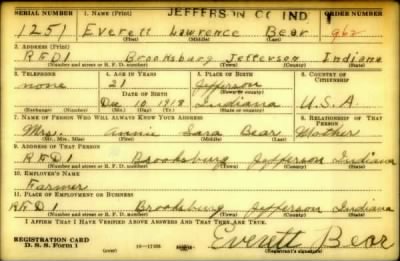 JEFFERSON CO IND
SERIAL NUMBER 1. NAME (Print) ORDER NUMBER
1251 Everett Lawrence Bear 962
(First) (Middle) (Last)
2. ADDRESS (Print)
R F D 1 Brooksburg Jefferson Indiana
(Number and street or R. F. D. number) (Town) (County) (State)
3. TELEPHONE 4. AGE IN YEARS 5. PLACE OF BIRTH 6. COUNTRY OF CITIZENSHIP
none 21 Jefferson
DATE OF BIRTH (Town or county)
Dec 10 1918 Indiana U.S.A.
(Exchange) (Number) (Mo.) (Day) (Yr.) (State or country)
7. NAME OF PERSON WHO WILL ALWAYS KNOW YOUR ADDRESS 8. RELATIONSHIP OF THAT PERSON
Mrs. Annie Sara Bear Mother
(Mr., Mrs., Miss) (First) (Middle) (Last)
9. ADDRESS OF THAT PERSON
R F D 1 Brooksburg Jefferson Indiana
(Number and street or R. F. D. number) (Town) (County) (State)
10. EMPLOYER'S NAME
Farmer
11. PLACE OF EMPLOYMENT OR BUSINESS
R F D 1 Brooksburg Jefferson Indiana
(Number and street or R. F. D. number) (Town) (County) (State)
I AFFIRM THAT I HAVE VERIFIED ABOVE ANSWERS AND THAT THEY ARE TRUE.
REGISTRATION CARD
D. S. S. Form 1 Everett Bear
(Registrant's signature)